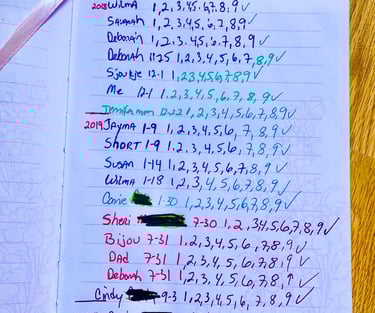 2018 Wilma 1,2,3,4,5,6,7,8,9 ✓
Savanah 1,2,3,4,5,6,7,8,9 ✓
Deborah 1,2,3,4,5,6,7,8,9 ✓
Deborah 11-25 1,2,3,4,5,6,7,8,9 ✓
Sjoukje 12-1 1,2,3,4,5,6,7,8,9 ✓
Me 12-1 1,2,3,4,5,6,7,8,9 ✓
12-22 1,2,3,4,5,6,7,8,9 ✓
2019 Jayma 1-9 1,2,3,4,5,6,7,8,9 ✓
Short 1-9 1,2,3,4,5,6,7,8,9 ✓
Susan 1-14 1,2,3,4,5,6,7,8,9 ✓
Wilma 1-18 1,2,3,4,5,6,7,8,9 ✓
Carie 1-30 1,2,3,4,5,6,7,8,9 ✓
Sheri 7-30 1,2,3,4,5,6,7,8,9 ✓
Bijou 7-31 1,2,3,4,5,6,7,8,9 ✓
Dad 7-31 1,2,3,4,5,6,7,8,9 ✓
Deborah 7-31 1,2,3,4,5,6,7,8,9 ✓
Cindy 9-3 1,2,3,4,5,6,7,8,9 ✓